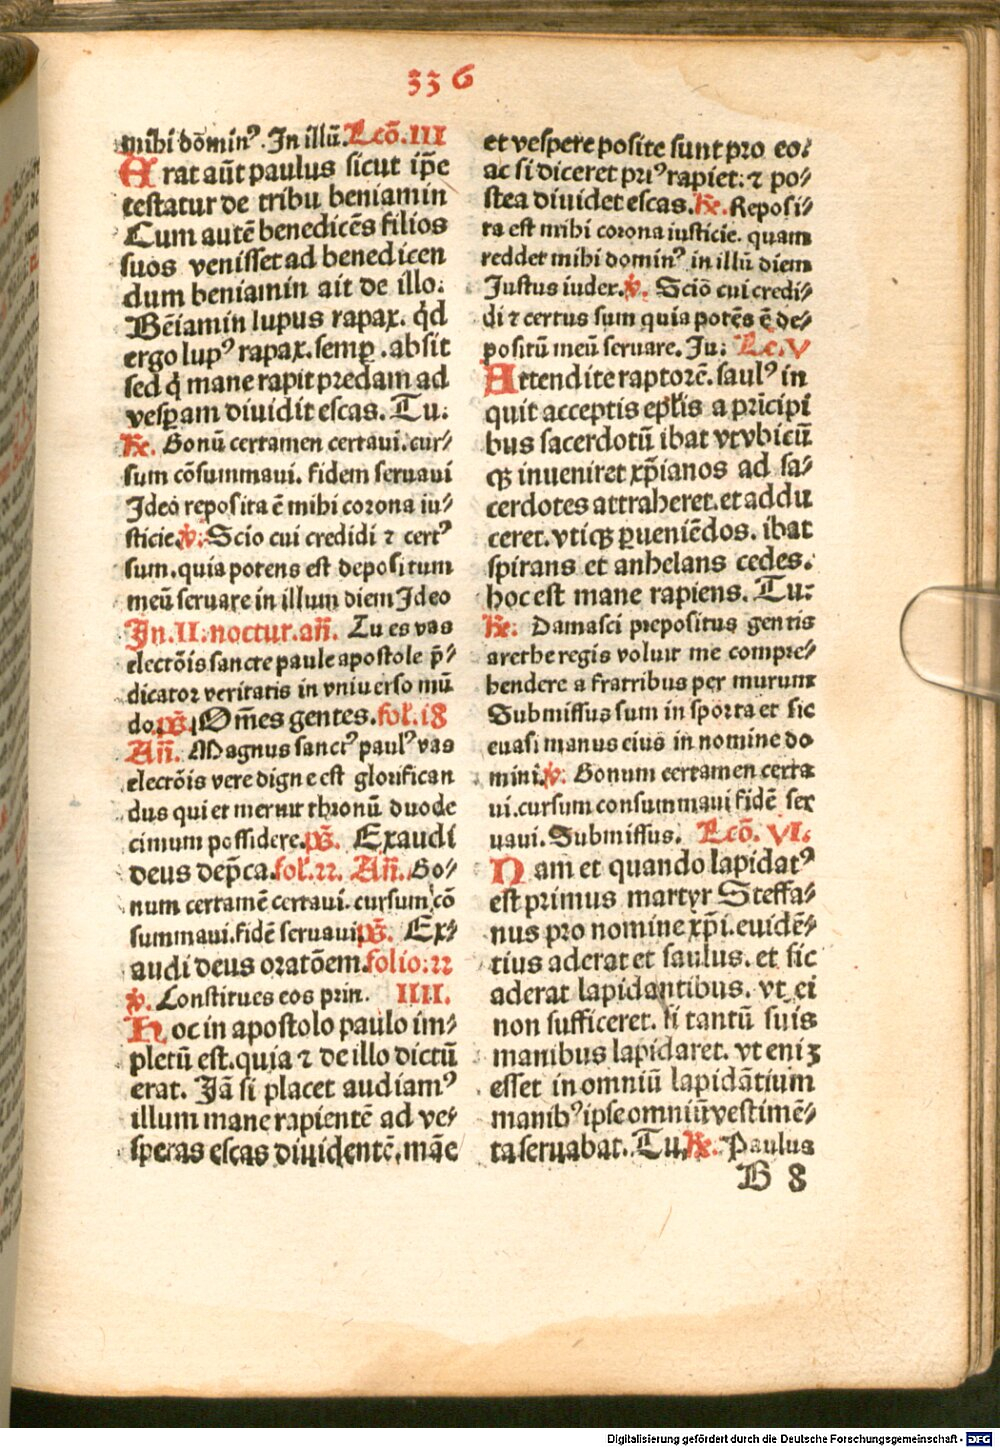 336
mihi dōminꝰ. In illū. Lcō. III
Erat aūt paulus sicut ip̄e
testatur de tribu beniamin
Cum autē benedicēs filios
suos venisset ad benedicen
dum beniamin ait de illo.
Bēiamin lupus rapax. q̇d
ergo lupꝰ rapax. semꝑ. absit
sed q̇ mane rapit predam ad
vesꝑam diuidit escas. Tu.
℞. Bonū certamen certaui. cur⸗
sum cōsummaui. fidem seruaui
Ideo reposita ē mihi corona iu⸗
sticie. ℣. Scio cui credidi ⁊ certꝰ
sum. quia potens est depositum
meū seruare in illum diem Ideo
In. II. noctur. an̄. Tu es vas
electōis sancte paule apostole p̄⸗
dicator veritatis in vniuerso mū
do. ps̄. Om̄es gentes. fol. 18
An̄. Magnus sanctꝰ paulꝰ vas
electōis vere digne est glorifican
dus qui et meruit thronū duode
cimum possidere. ps̄. Exaudi
deus dep̄ca. fol. 22. An̄. Bo⸗
num certamē certaui. cursum cō
summaui. fidē seruaui ps̄. Ex⸗
audi deus oratōem. folio. 22
℣. Constitues eos prin. IIII.
Hoc in apostolo paulo im⸗
pletū est. quia ⁊ de illo dictū
erat. Jā si placet audiamꝰ
illum mane rapientē ad ve⸗
speras escas diuidentē. māe
et vespere posite sunt pro eo.
ac si diceret priꝰ rapiet: ⁊ po⸗
stea diuidet escas. ℞. Reposi⸗
ta est mihi corona iusticie. quam
reddet mihi dominꝰ in illū diem
Justus iudex. ℣. Sciō cui credi⸗
di ⁊ certus sum quia potēs ē de⸗
positū meū seruare. Ju. Lc. V
Attendite raptorē. saulꝰ in
quit acceptis ep̄lis a prīcipi
bus sacerdotū ibat vt vbicū
qꝫ inueniret xp̄ianos ad sa⸗
cerdotes attraheret. et addu
ceret. vticꝫ ꝑueniēdos. ibat
spirans et anhelans cedes.
hoc est mane rapiens. Tu.
℞. Damasci prepositus gentis
arethe regis voluit me compre⸗
hendere a fratribus per murum
Submissus sum in sporta et sic
euasi manus eius in nomine do
mini. ℣. Bonum certamen certa
ui. cursum consummaui fidē ser
uaui. Submissus. Lcō. VI.
Nam et quando lapidatꝰ
est primus martyr Steffa⸗
nus pro nomine xp̄i. euidē⸗
tius aderat et saulus. et sic
aderat lapidantibus. vt ei
non sufficeret. si tantū suis
manibus lapidaret. vt eniꝫ
esset in omniū lapidātium
manibꝰ ipse omniū vestimē⸗
ta seruabat. Tu. ℞. Paulus
B 8
Digitalisierung gefördert durch die Deutsche Forschungsgemeinschaft - DFG